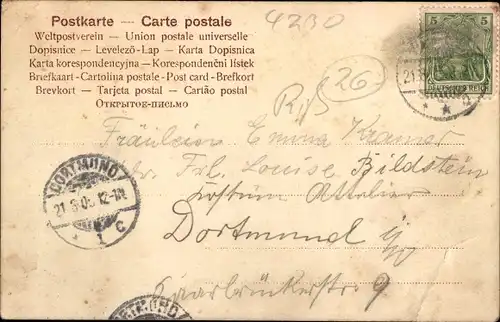 Postkarte — Carte postale
Weltpostverein — Union postale universelle
Dopisnice — Levelező-Lap — Karta Dopisnica
Karta korespondencyjna — Korespondenční lístek
Briefkaart - Cartolina postale - Post card - Brefkort
Brevkort — Tarjeta postal — Cartão postal
ОТКРЫТОЕ-ПИСЬМО
4230
26
5 5
DEUTSCHES REICH
Fräulein Emma Kramer
Frl. Louise Bildstein
Kostüm Attelier
Dortmund i/W
Saarbrückerstr. 9
DORTMUND
12-1N
* 1 C